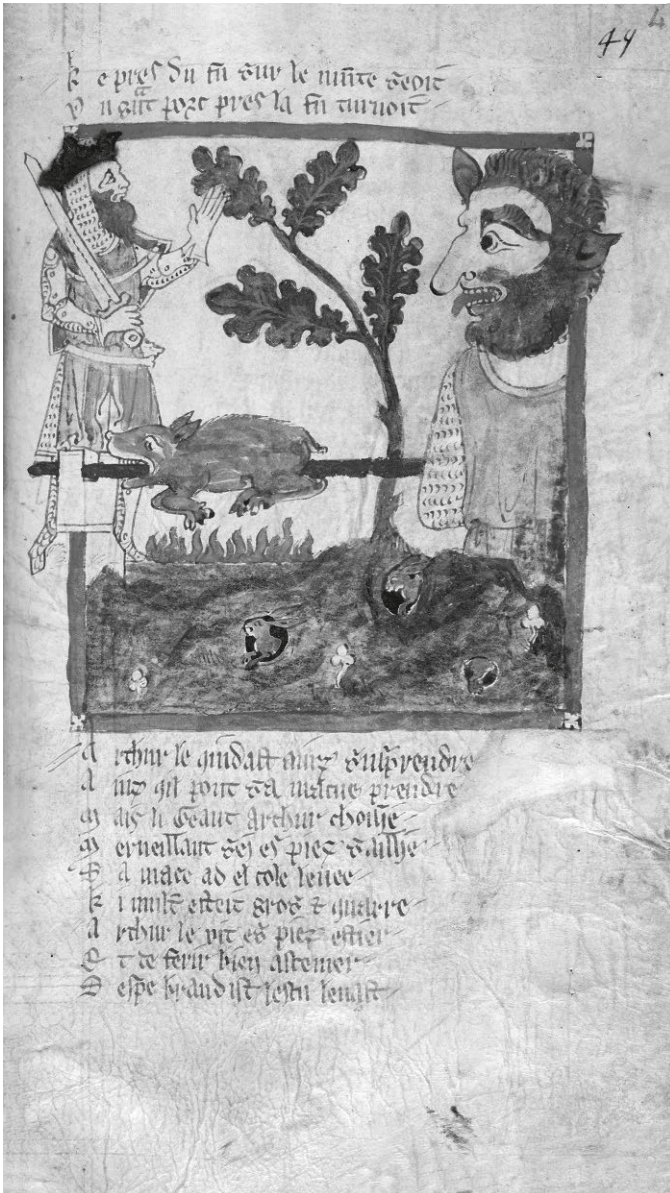 44
k e pres du fu sur le munte seoit
v n gnt porc pres la fu turnoit
A rthur le quidast ainz susprendre
A inz qil pout sa macue prendre
M ais li Geant Arthur choisie
M erueillant sei es piez saillie
S a mace ad el cole leuee
k i mult esteit gros & quarre
A rthur le vit es piez estier
E t de ferir bien astemer
D espe brandist lescu leuast